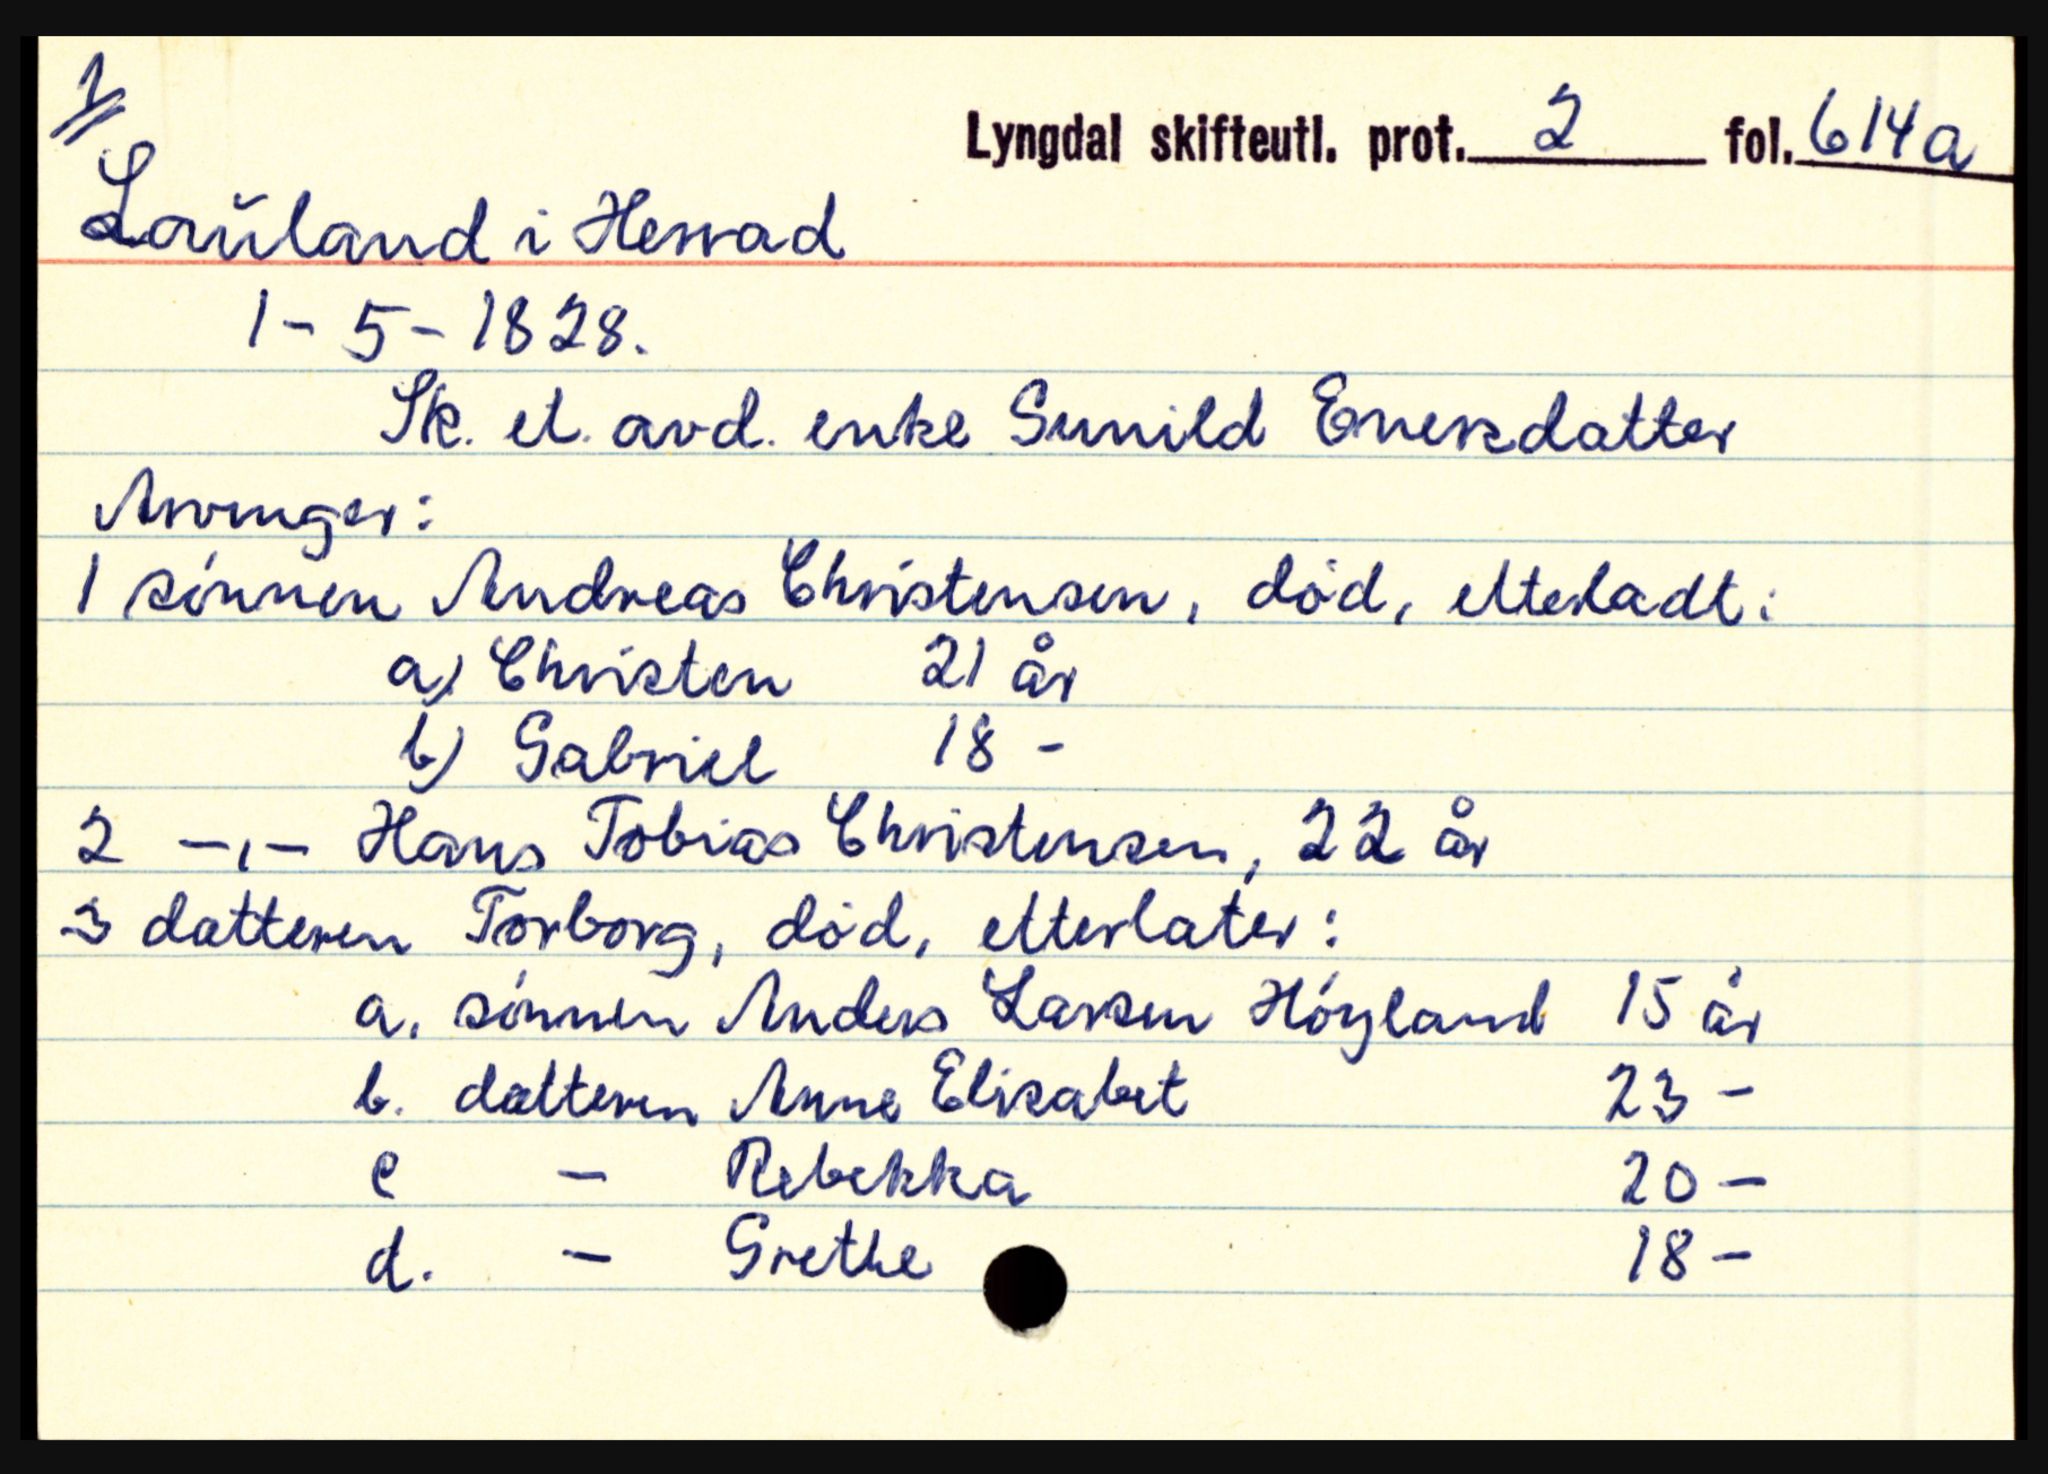 1
Lyngdal skifteutl. prot. 2 fol. 614a
Lauland i Herrad
1-5-1828.
Sk. et. avd. enke Gunild Enersdatter
Arvinger:
1 sønnen Andreas Christensen, død, etterladt:
a) Christen 21 år
b) Gabriel 18 -
2 -,- Hans Tobias Christensen, 22 år
3 datteren Torborg, død, etterlater:
a. sønnen Anders Larsen Höyland 15 år
b. datteren Anne Elisabet 23 -
c - Rebekka 20 -
d. - Grethe 18 -